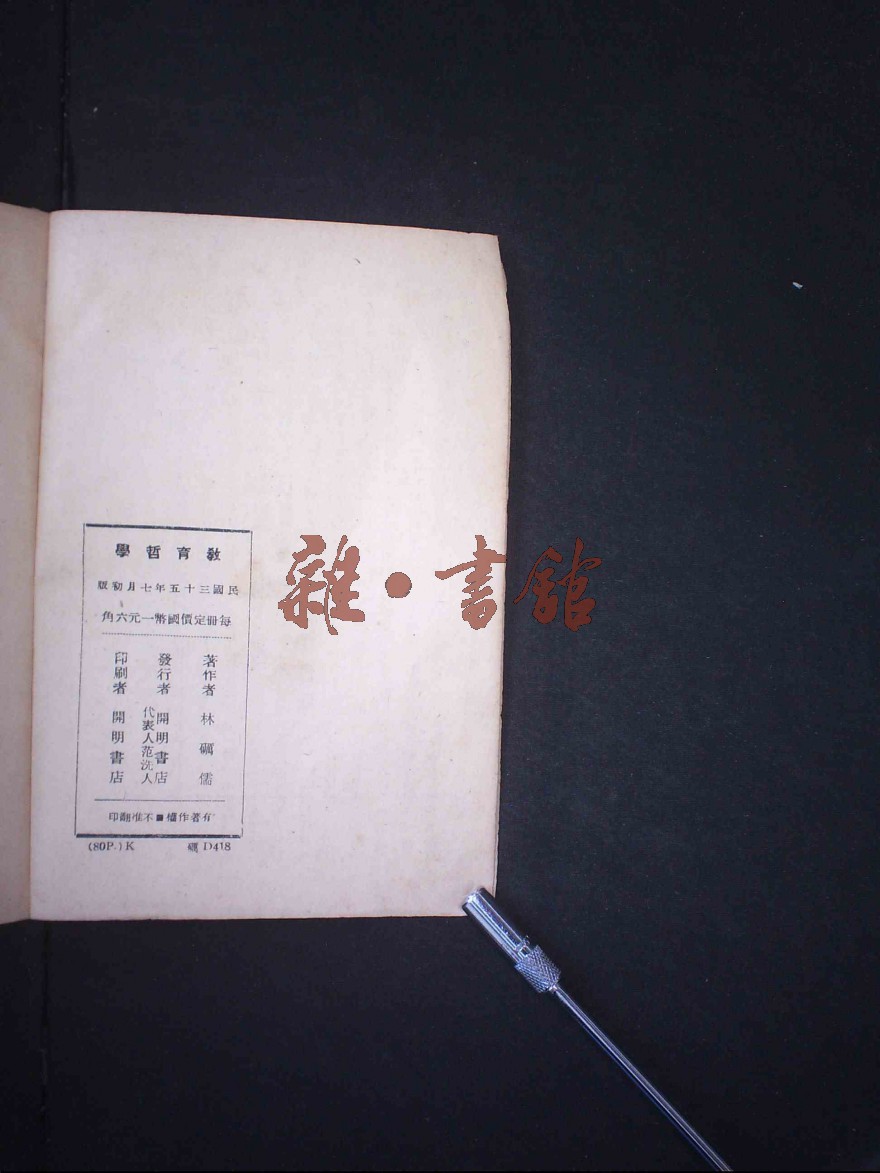 教育哲學
民國三十五年七月初版
每冊定價國幣一元六角
著作者 林礪儒
發行者 開明書店
代表人范洗人
印刷者 開明書店
有著作權■不准翻印
(80P.) K
礪 D418
雜•書館